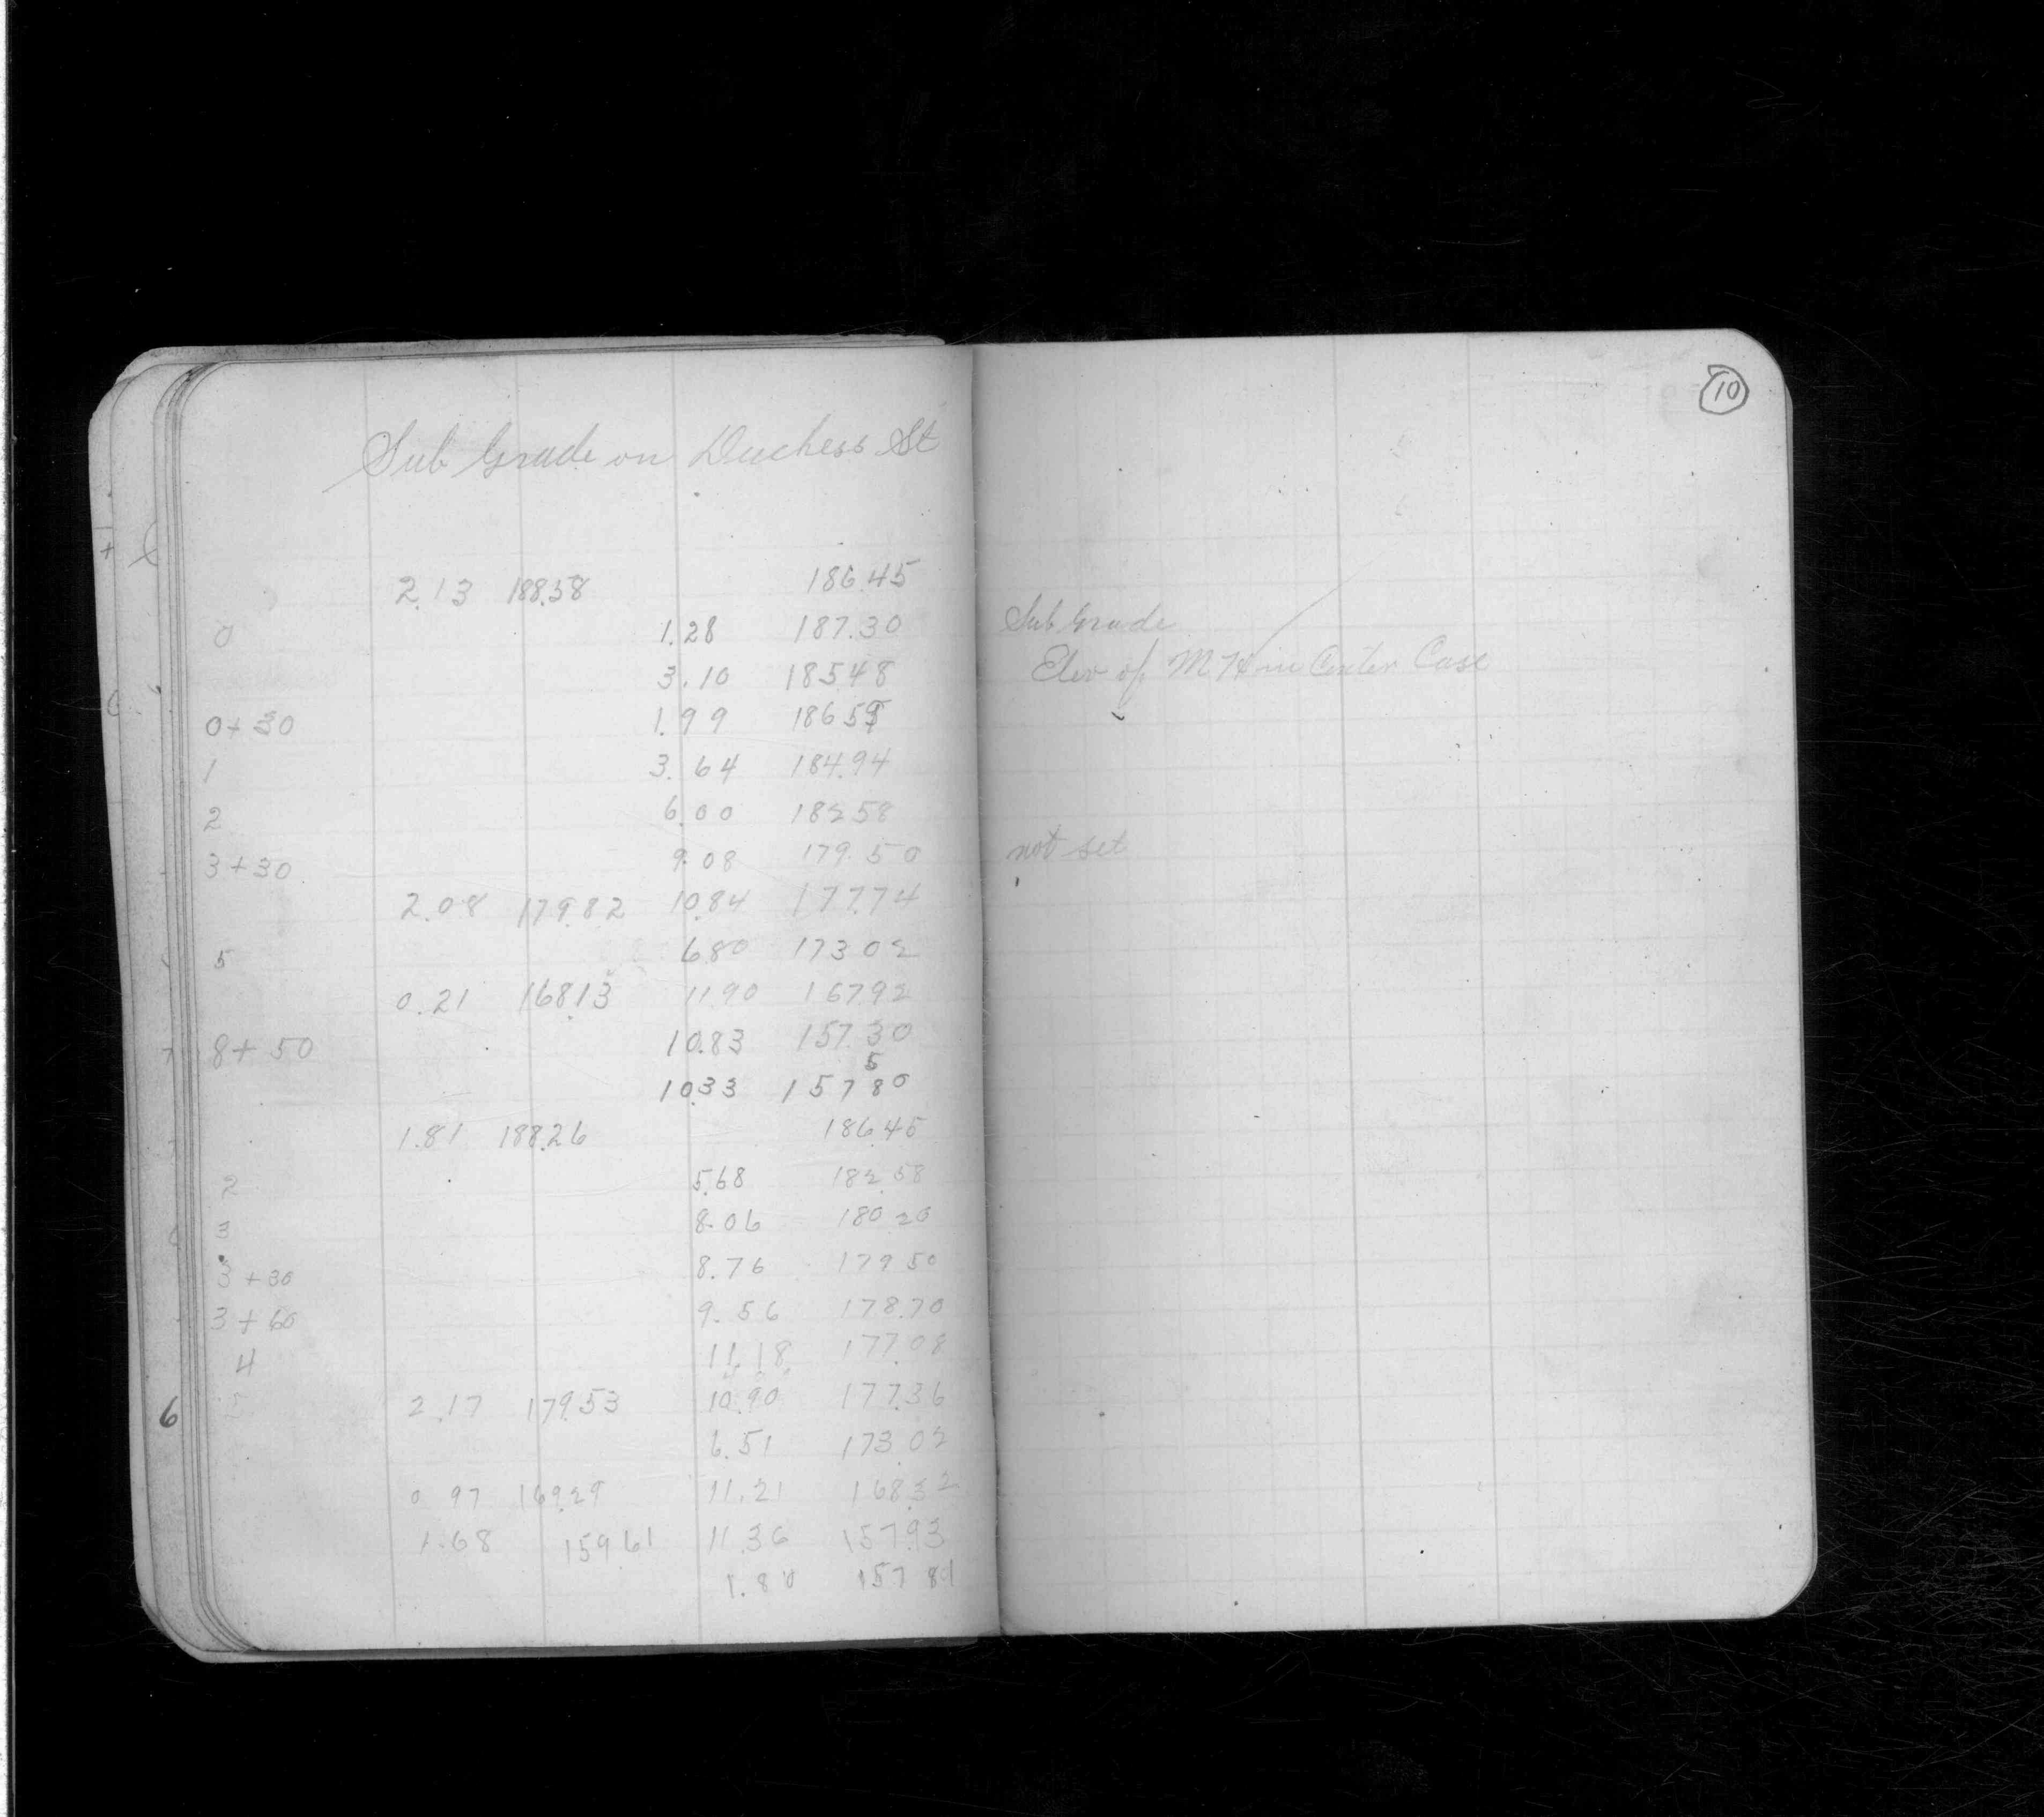 Sub Grade on Duchess St
2.13 188.58 186.45
0 1.28 187.30
3.10 185.48
0+30 1.99 186.59
1 3.64 184.94
2 6.00 182.58
3+30 9.08 179.50
2.08 179.82 10.84 177.74
5 6.80 173.02
0.21 168.13 11.90 167.92
8+50 10.83 157.30
5
10.33 157 80
1.81 188.26 186.45
2 5.68 182.58
3 8.06 180.20
3+30 8.76 179.50
3+60 9.56 178.70
4 11.18 177.08
2.17 179.53 10.90 177.36
6.51 173.02
0.97 169.29 11.21 168.32
1.68 159.61 11.36 157.93
1.80 157
6
10
Sub Grade
Elev of M H in Center Case
not set